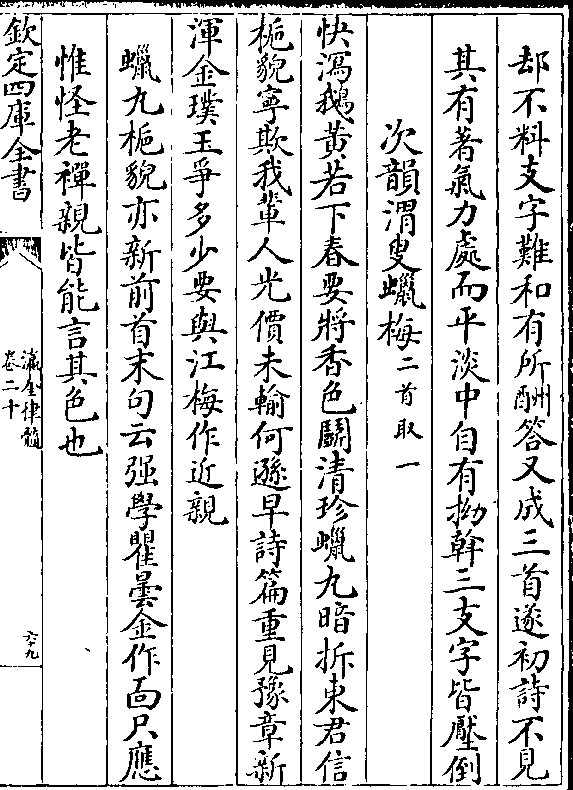 却不料支字難和有所酬答又成三首遂初詩不見
其有著氣力處而平淡中自有拗斡三支字皆壓倒
次韻渭叟蠟梅二首取一
快瀉鵝黄若下春要將香色鬭清珍蠟九暗拆東君信
梔貌寧欺我輩人光價未輸何遜早詩篇重見豫章新
渾金璞玉爭多少要與江梅作近親
蠟九梔貌亦新前首末句云强學瞿曇金作面只應
惟怪老禪親皆能言其色也
欽定四庫全書
瀛奎律髓
卷二十
六十九